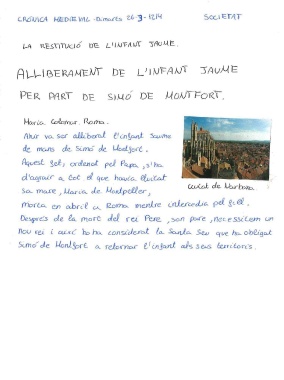 CRÒNICA MEDIEVAL - Dimarts 26-3-1214 SOCIETAT
LA RESTITUCIÓ DE L'INFANT JAUME.
ALLIBERAMENT DE L'INFANT JAUME
PER PART DE SIMÓ DE MONTFORT.
Maria Colomar. Roma.
Ahir va ser alliberat l'infant Jaume
de mans de Simó de Montfort.
Aquest fet, ordenat pel Papa, s'ha
d'agrair a tot el que havia lluitat
sa mare, Maria de Montpeller,
morta en abril a Roma mentre intercedia pel fill.
Després de la mort del rei Pere, son pare, necessitem un
nou rei i així ho ha considerat la Santa Seu que ha obligat
Simó de Montfort a retornar l'infant als seus territoris.
Ciutat de Narbona.